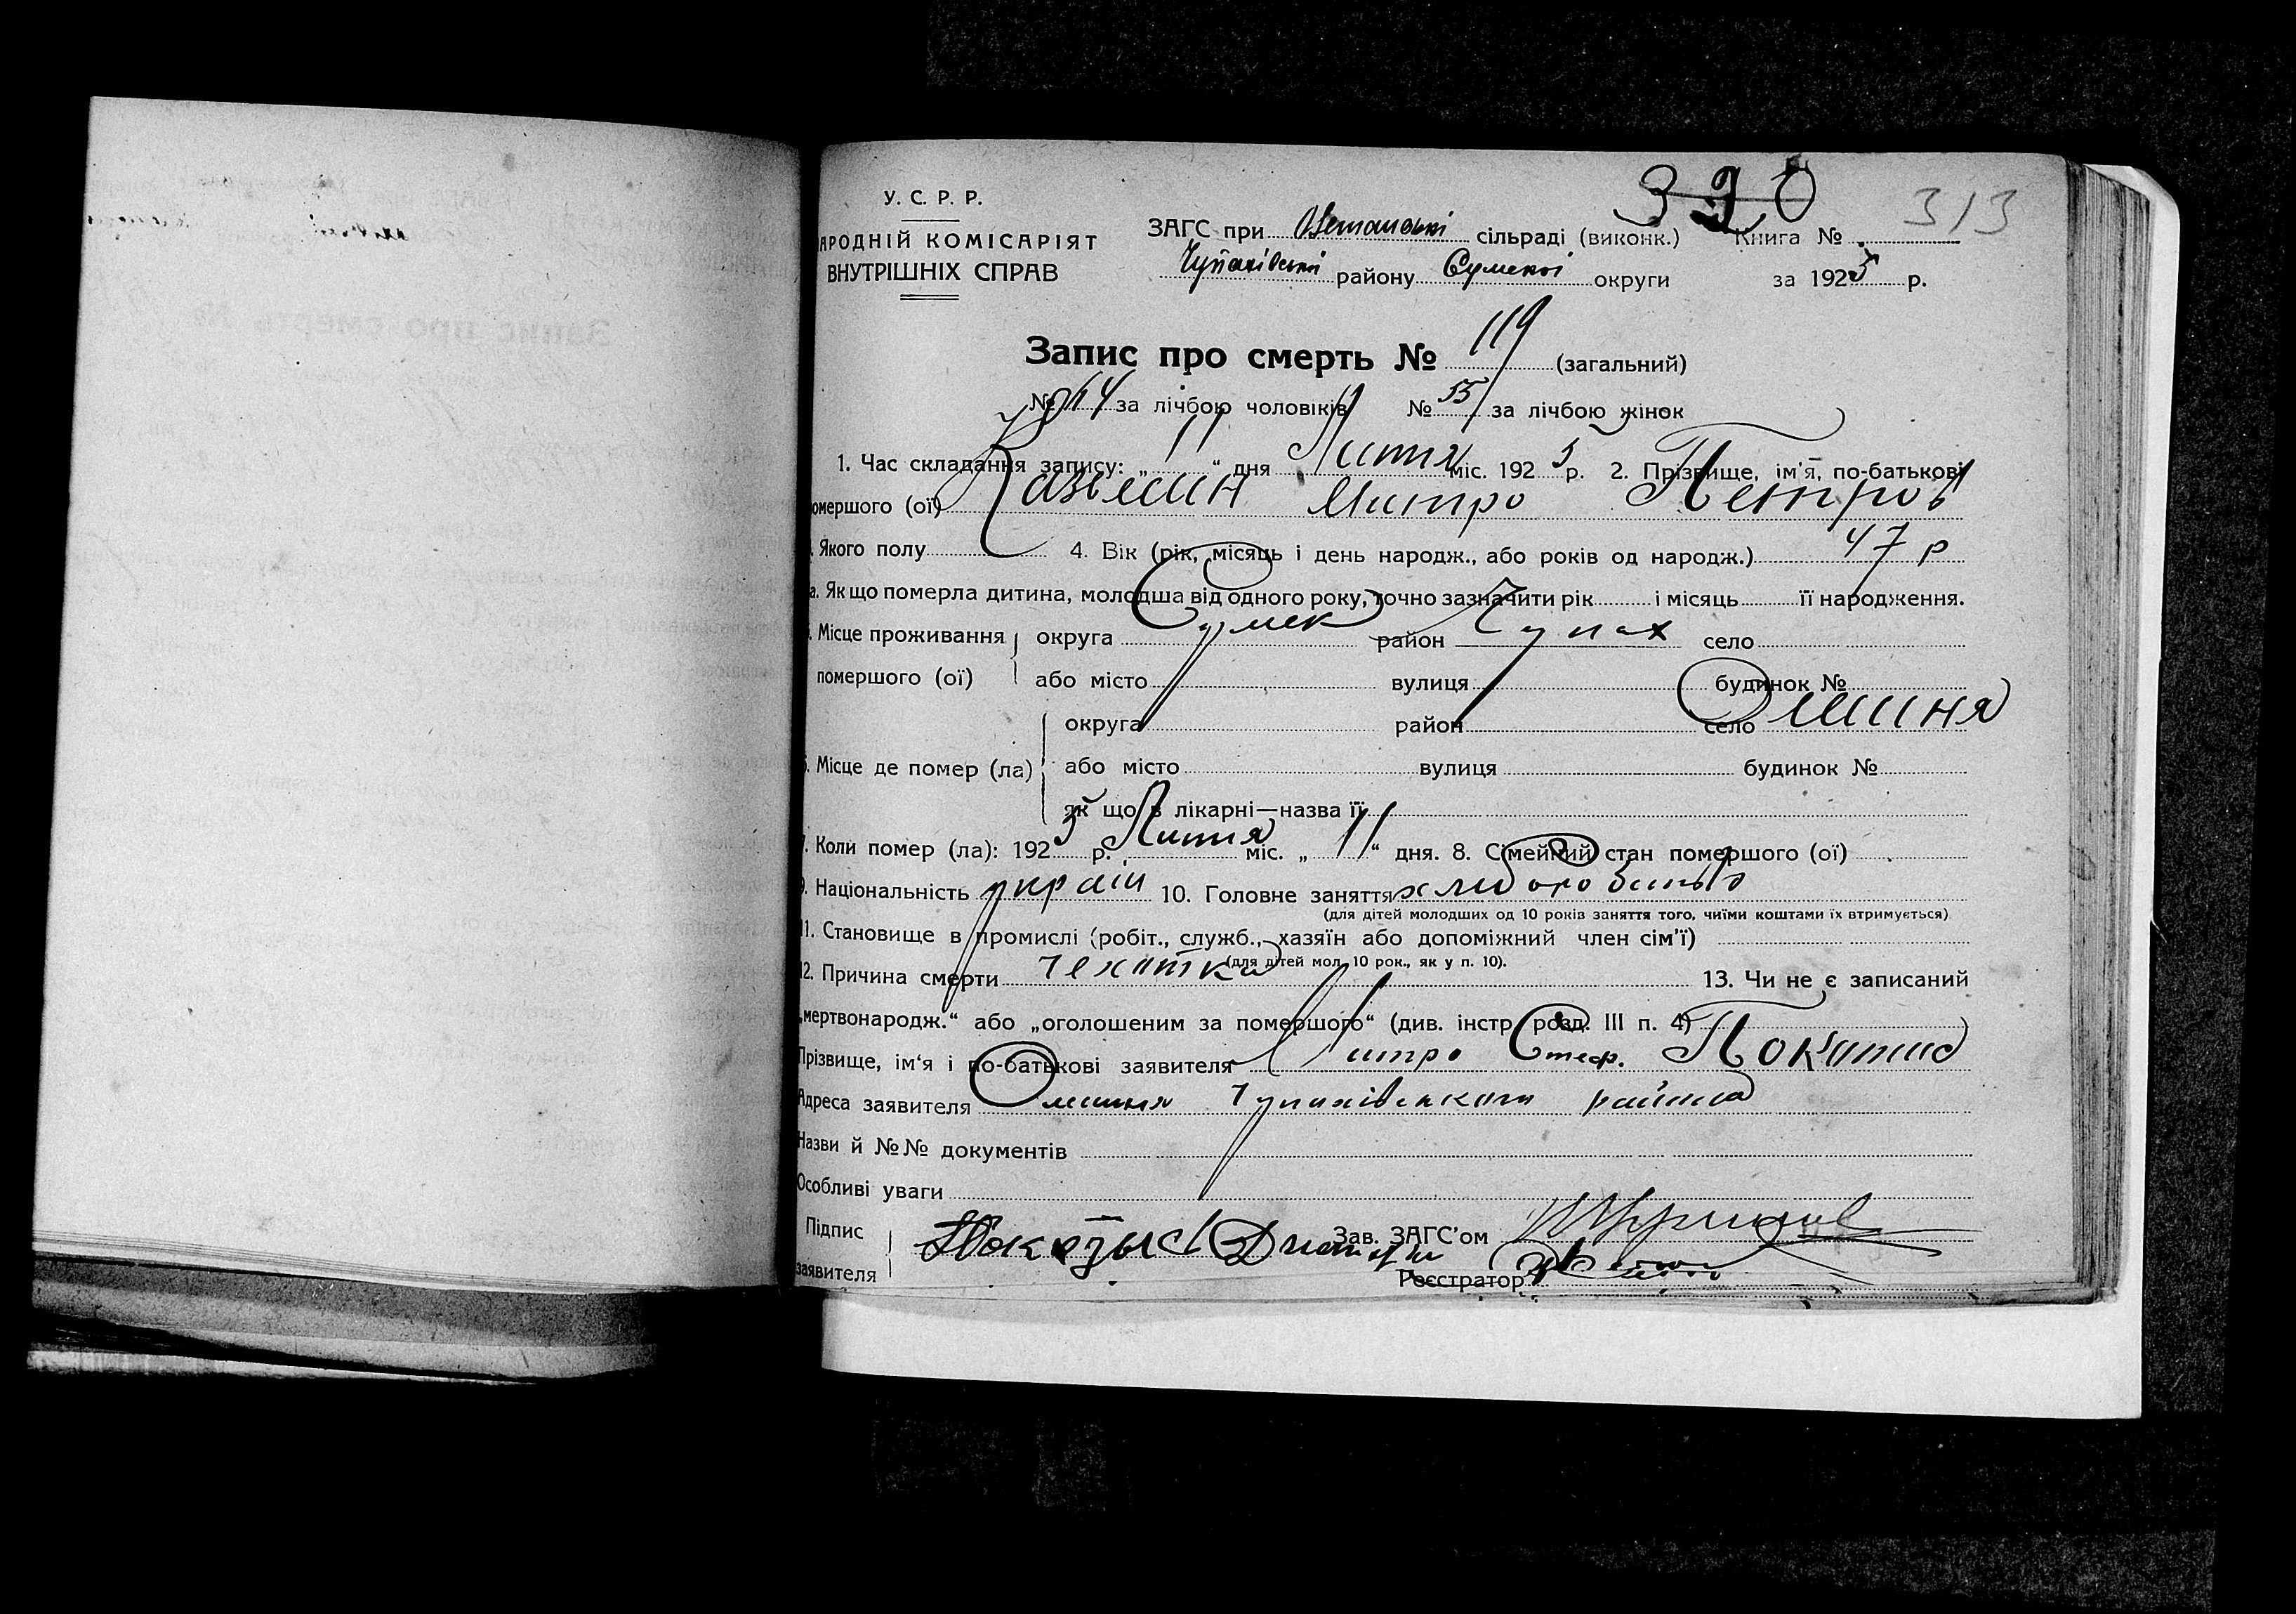 320 313
У. С. Р. Р.
АРОДНІЙ КОМІСАРІЯТ
ВНУТРІШНІХ СПРАВ
ЗАГС при сільраді (виконк.) Книга №
Чупахівськ району Сумской округи за 1925 р.
Запис про смерть № 119 (загальний)
№ 64 за лічбою чоловіків № 55 за лічбою жінок
1. Час складання запису: „ 11 “ дня Липня міс. 1925 р. 2. Прізвище, ім'я, по-батькові
омершого (ої) Казьмин Митро Петров
Якого полу 4. Вік (рік, місяць і день народж., або років од народж.) 47 р
а. Якщо померла дитина, молодша від одного року, точно зазначити рік і місяць її народження.
Місце проживання округа Сумск район Чупах село
помершого (ої) або місто вулиця будинок №
округа район село Олешня
Місце де помер (ла) або місто вулиця будинок №
як що в лікарні—назва її
Коли помер (ла): 1925 р. Липня міс. „ 11 “ дня. 8. Сімейний стан помершого (ої)
9. Національність україн 10. Головне заняття
(для дітей молодших од 10 років заняття того, чиїми коштами їх втримується)
11. Становище в промислі (робіт., служб., хазяїн або допоміжний член сім'ї)
(для дітей мол. 10 рок., як у п. 10).
12. Причина смерти чехотка 13. Чи не є записаний
„мертвонародж.“ або „оголошеним за помершого“ (див. інстр. розд. III п. 4)
Прізвище, ім'я і по-батькові заявителя Митро Стеф.
Адреса заявителя Олешня Чупахівського района
Назви й №№ документів
Особливі уваги
Підпис
заявителя
Зав. ЗАГС'ом
Реєстратор